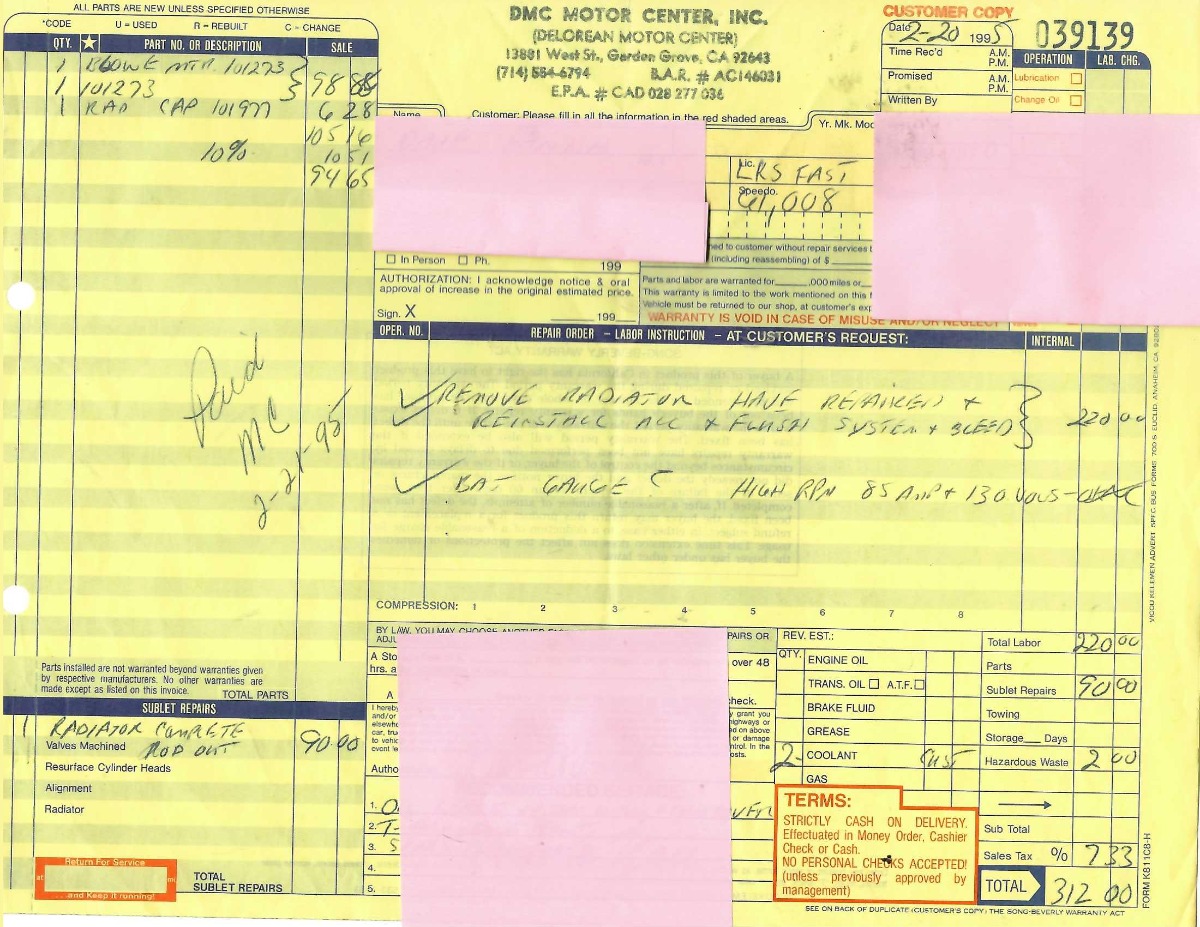 ALL PARTS ARE NEW UNLESS SPECIFIED OTHERWISE
*CODE U = USED R = REBUILT C = CHANGE
QTY. ★ PART NO. OR DESCRIPTION SALE
1 MTR 101273
1 101273 98 88
1 RAD CAP 101977 6 28
105 16
10% 10 51
94 65
DMC MOTOR CENTER, INC.
(DELOREAN MOTOR CENTER)
13881 West St., Garden Grove, CA 92643
(714) 554-6794 B.A.R. # AC146031
E.P.A. # CAD 028 277 036
CUSTOMER COPY
Date 2-20 1995
039139
Time Rec'd A.M. P.M.
Promised A.M. P.M.
Written By
OPERATION LAB. CHG.
Lubrication
Change Oil
Name
Customer: Please fill in all the information in the red shaded areas.
Yr. Mk. Mod
Lic. LRS FAST
Speedo. 61,008
ned to customer without repair services b
(including reassembling) of $
In Person Ph. 199
AUTHORIZATION: I acknowledge notice & oral
approval of increase in the original estimated price.
Sign. X 199
Parts and labor are warranted for ,000 miles or
This warranty is limited to the work mentioned on this
Vehicle must be returned to our shop, at customer's exp
WARRANTY IS VOID IN CASE OF MISUSE AND/OR NEGLECT
OPER. NO. REPAIR ORDER – LABOR INSTRUCTION – AT CUSTOMER'S REQUEST: INTERNAL
✓ REMOVE RADIATOR HAVE REPAIRED +
REINSTALL ALL + FLUSH SYSTEM + BLEED 220 00
✓ BAT GAUGE HIGH RPM 85 AMP + 130 VOLTS
Paid
MC
2-21-95
COMPRESSION: 1 2 3 4 5 6 7 8
Parts installed are not warranted beyond warranties given
by respective manufacturers. No other warranties are
made except as listed on this invoice. TOTAL PARTS
SUBLET REPAIRS
1 RADIATOR COMPLETE
Valves Machined ROD OUT 90 00
Resurface Cylinder Heads
Alignment
Radiator
Return For Service
at mi.
...and Keep it running!
TOTAL
SUBLET REPAIRS
BY LAW, YOU MAY CHOOSE ANOTHER
ADJ PAIRS OR
A Sto over 48
hrs. a
A check.
I hereby y grant you
and/or highways or
elsewhe ed on above
car, tru or damage
to vehic ntrol. In the
event le osts.
Autho
1.
2. T-
3. S
4.
5.
REV. EST.:
QTY.
ENGINE OIL
TRANS. OIL A.T.F.
BRAKE FLUID
GREASE
2- COOLANT CUST
GAS
TERMS:
STRICTLY CASH ON DELIVERY.
Effectuated in Money Order, Cashier
Check or Cash.
NO PERSONAL CHECKS ACCEPTED!
(unless previously approved by
management)
Total Labor 220 00
Parts
Sublet Repairs 90 00
Towing
Storage Days
Hazardous Waste 2 00
Sub Total
Sales Tax % 7 33
TOTAL 312 00
SEE ON BACK OF DUPLICATE (CUSTOMER'S COPY) THE SONG-BEVERLY WARRANTY ACT
VICCU KELEMEN ADVERT. SPEC. BUS. FORMS 700 S. EUCLID, ANAHEIM, CA
FORM K811C8-H